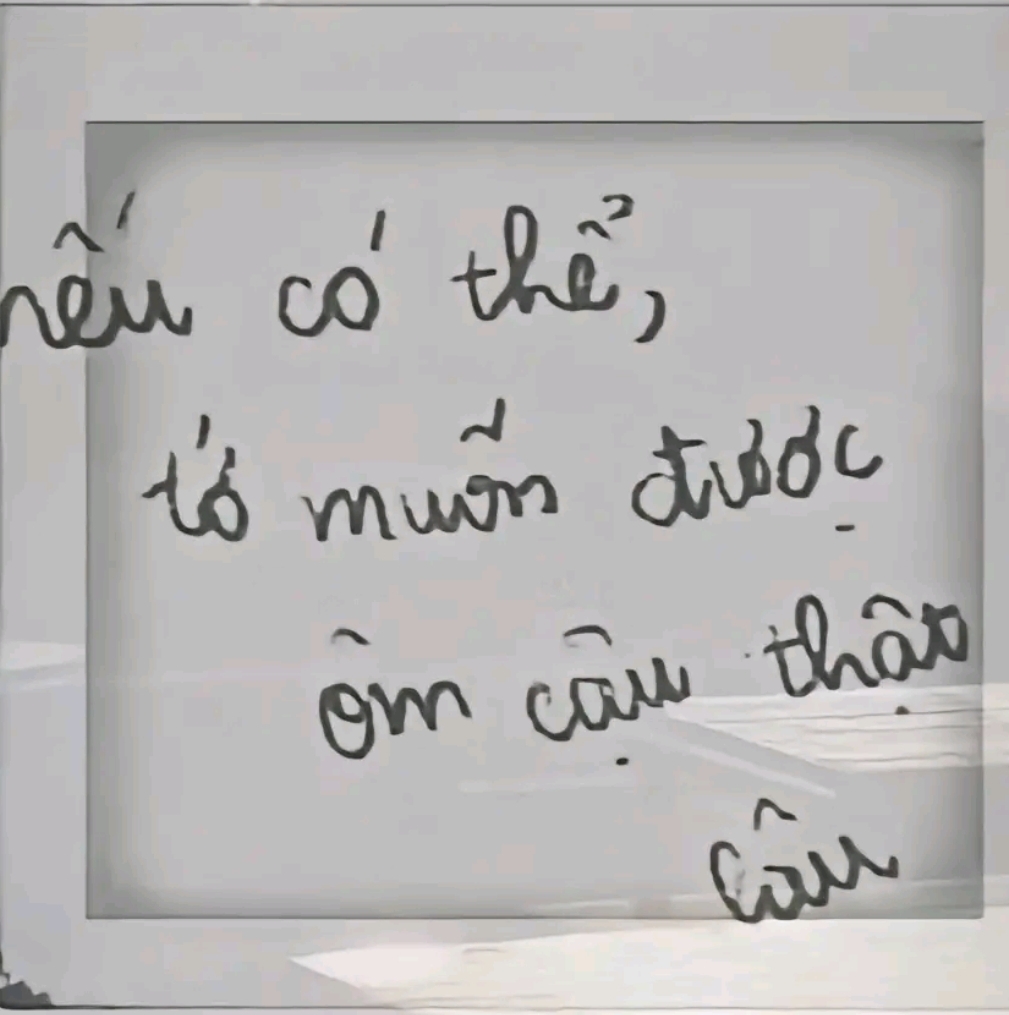 nếu có thể,
tớ muốn được
ôm cậu thật
lâu